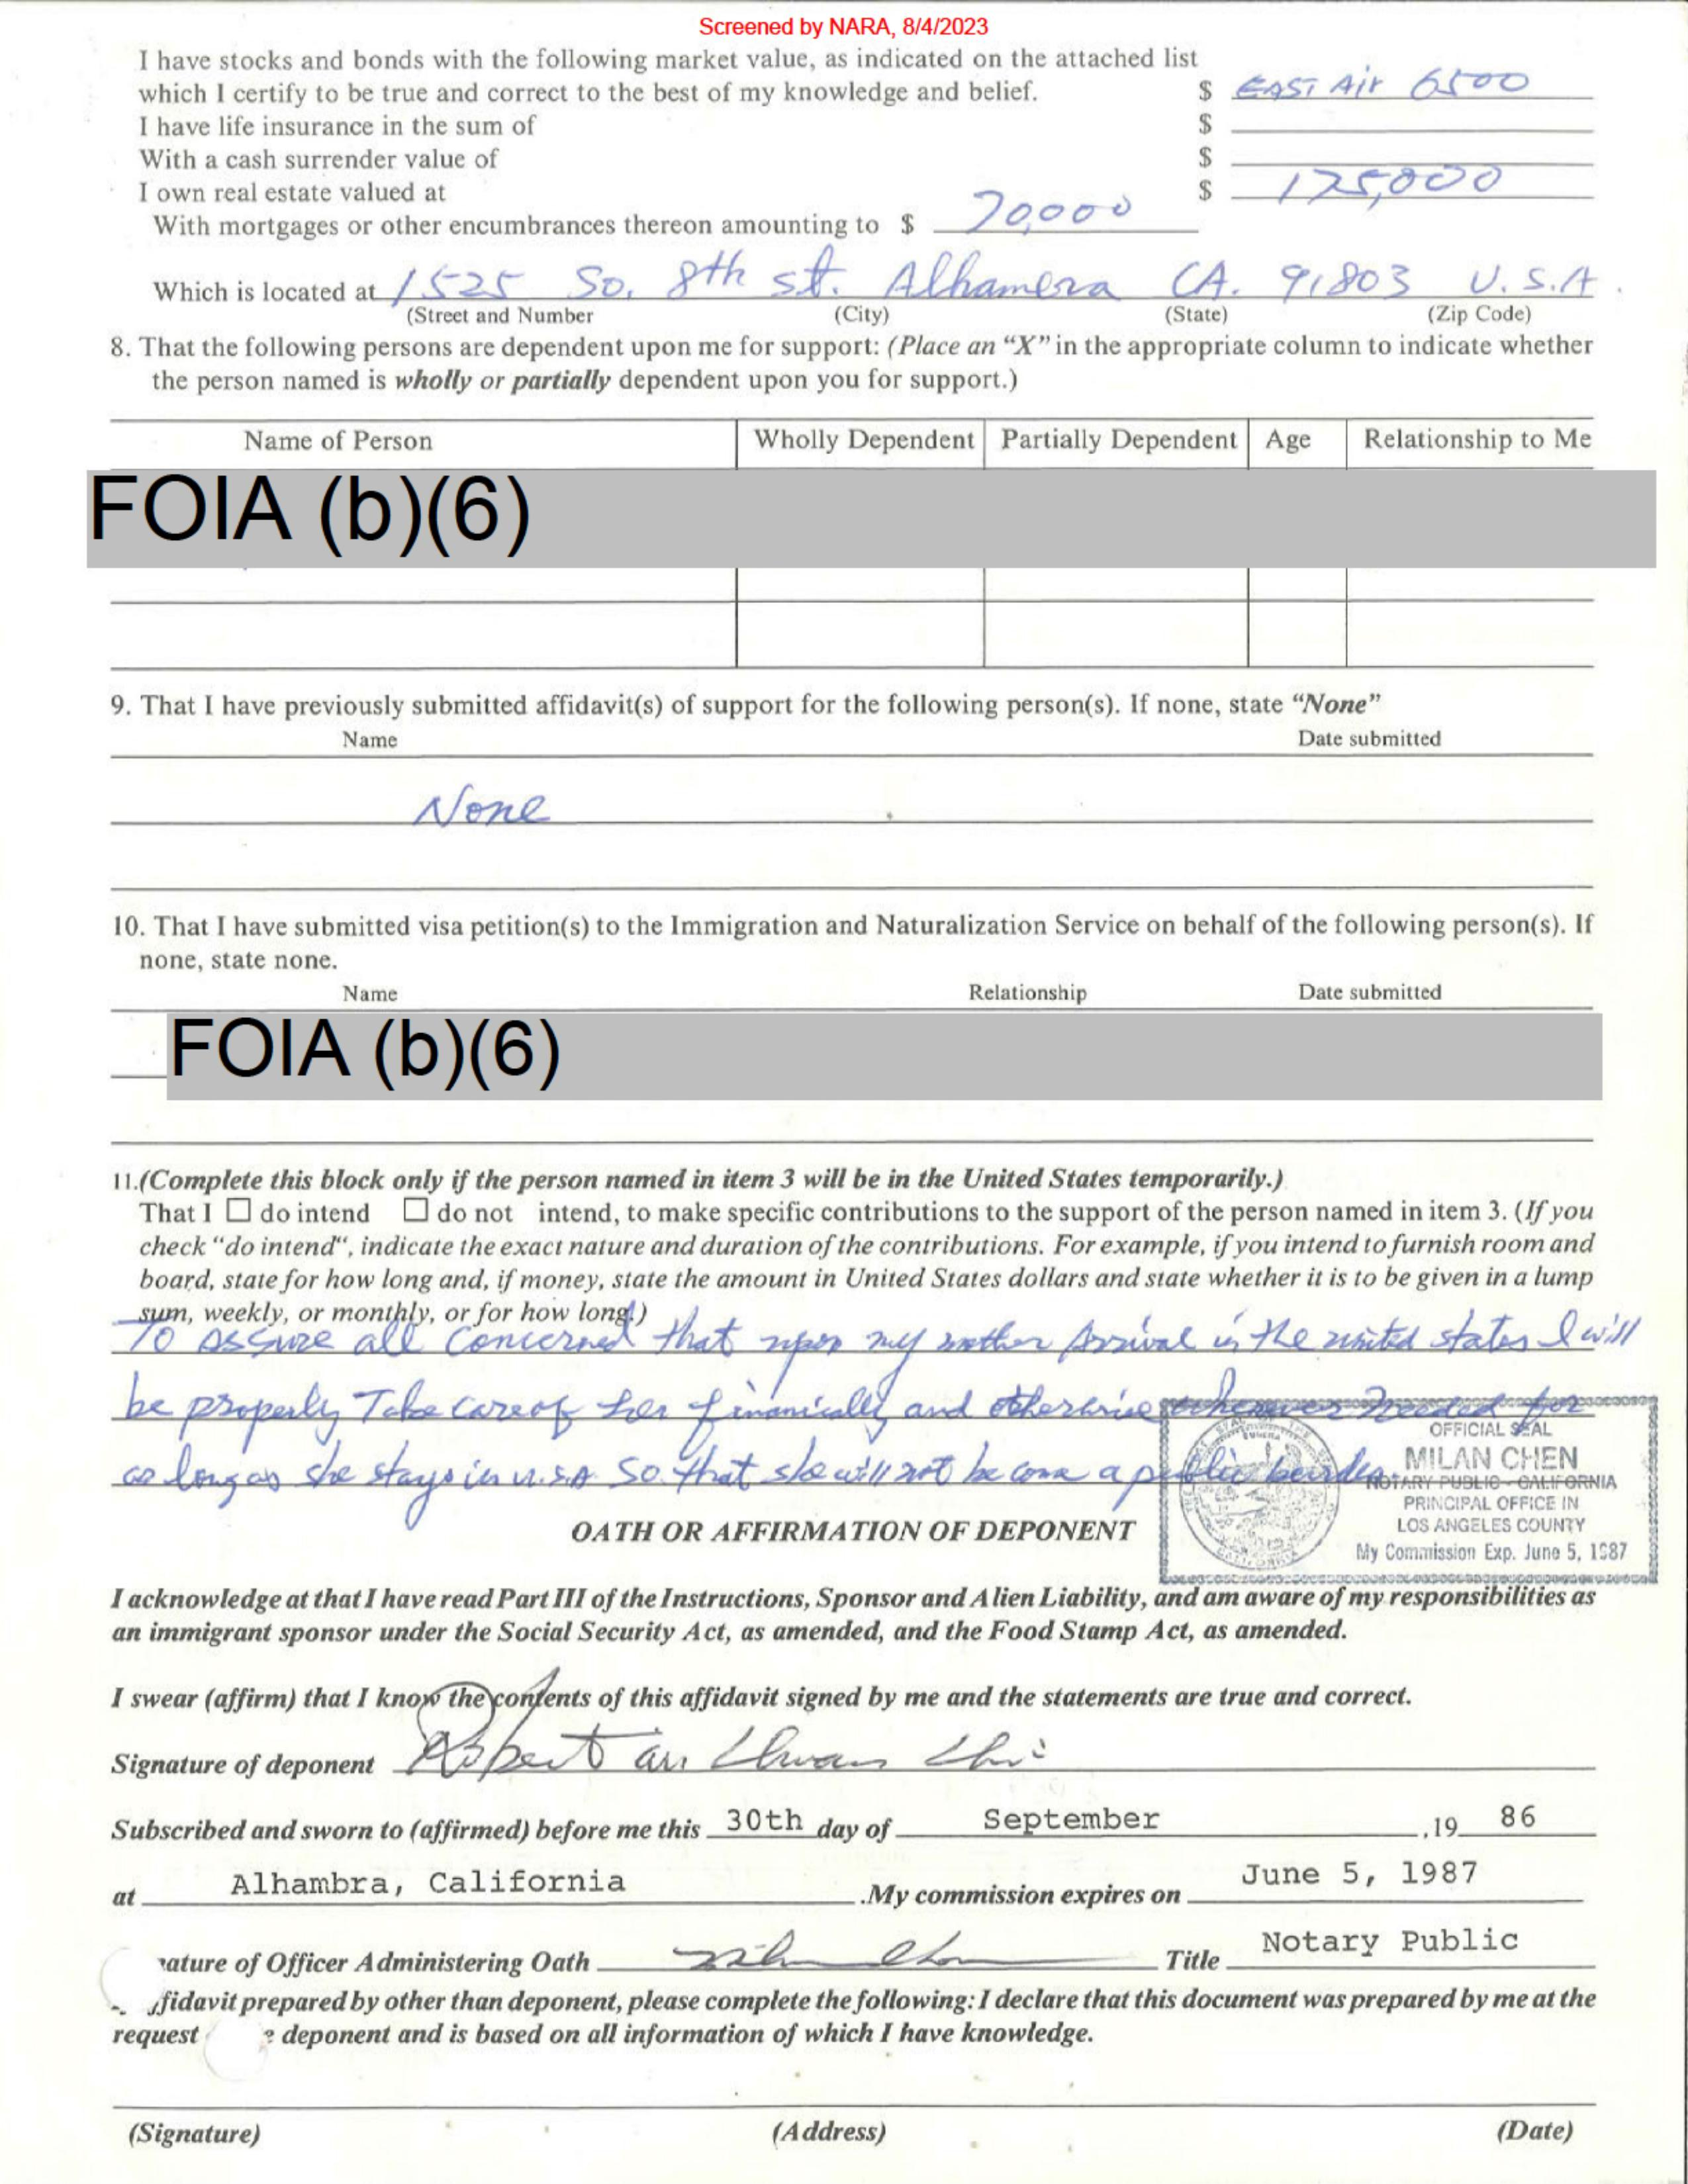 Screened by NARA, 8/4/2023
I have stocks and bonds with the following market value, as indicated on the attached list
which I certify to be true and correct to the best of my knowledge and belief. $ EAST Air 6500
I have life insurance in the sum of $
With a cash surrender value of $
I own real estate valued at $ 125,000
With mortgages or other encumbrances thereon amounting to $ 70,000
Which is located at 1525 So. 8th st. Alhamera CA. 91803 U.S.A.
(Street and Number (City) (State) (Zip Code)
8. That the following persons are dependent upon me for support: (Place an “X” in the appropriate column to indicate whether
the person named is wholly or partially dependent upon you for support.)
Name of Person Wholly Dependent Partially Dependent Age Relationship to Me
FOIA (b)(6)
9. That I have previously submitted affidavit(s) of support for the following person(s). If none, state “None”
Name Date submitted
None
10. That I have submitted visa petition(s) to the Immigration and Naturalization Service on behalf of the following person(s). If
none, state none.
Name Relationship Date submitted
FOIA (b)(6)
11.(Complete this block only if the person named in item 3 will be in the United States temporarily.)
That I ☐ do intend ☐ do not intend, to make specific contributions to the support of the person named in item 3. (If you
check “do intend“, indicate the exact nature and duration of the contributions. For example, if you intend to furnish room and
board, state for how long and, if money, state the amount in United States dollars and state whether it is to be given in a lump
sum, weekly, or monthly, or for how long.)
To assure all concerned that upon my mother Arrival in the united states I will
be properly Take care of her financially and otherwise whenever needed for
as long as she stays in U.S.A. So that she will not become a public burden
OFFICIAL SEAL
MILAN CHEN
NOTARY PUBLIC - CALIFORNIA
PRINCIPAL OFFICE IN
LOS ANGELES COUNTY
My Commission Exp. June 5, 1987
OATH OR AFFIRMATION OF DEPONENT
I acknowledge at that I have read Part III of the Instructions, Sponsor and Alien Liability, and am aware of my responsibilities as
an immigrant sponsor under the Social Security Act, as amended, and the Food Stamp Act, as amended.
I swear (affirm) that I know the contents of this affidavit signed by me and the statements are true and correct.
Signature of deponent Robert
Subscribed and sworn to (affirmed) before me this 30th day of September ,19 86
at Alhambra, California .My commission expires on June 5, 1987
nature of Officer Administering Oath Title Notary Public
ffidavit prepared by other than deponent, please complete the following: I declare that this document was prepared by me at the
request e deponent and is based on all information of which I have knowledge.
(Signature) (Address) (Date)